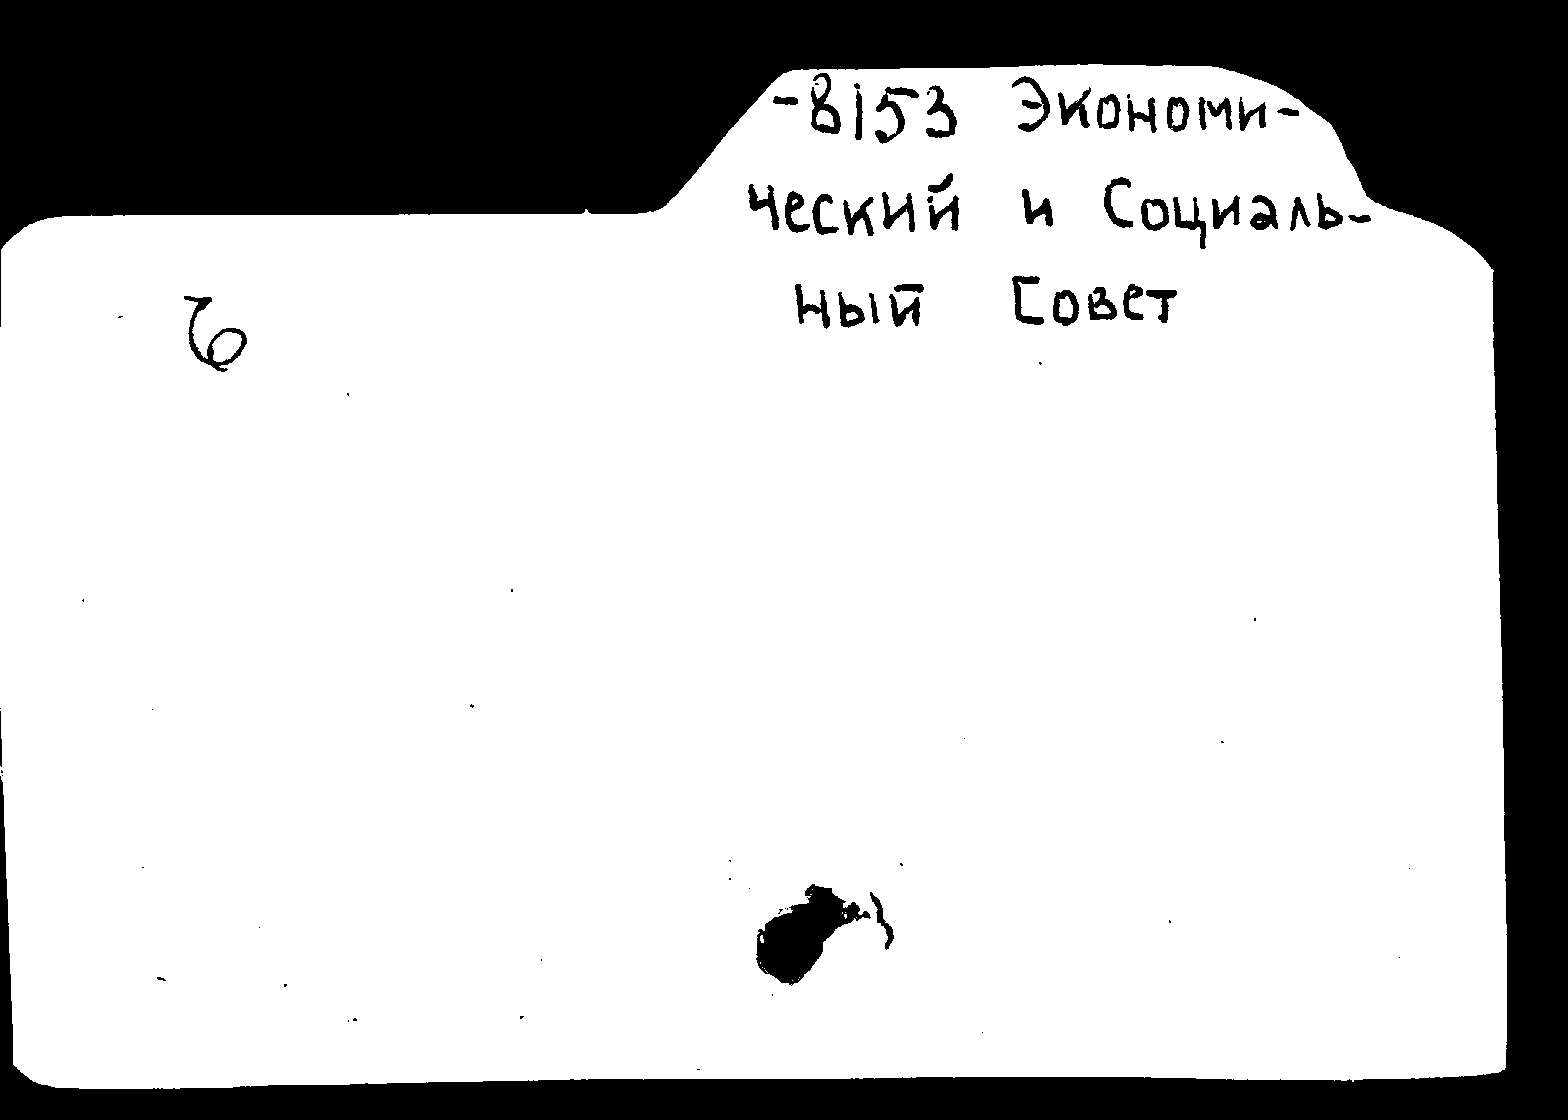 -8153 Экономи-
ческий и Социаль-
ный Совет